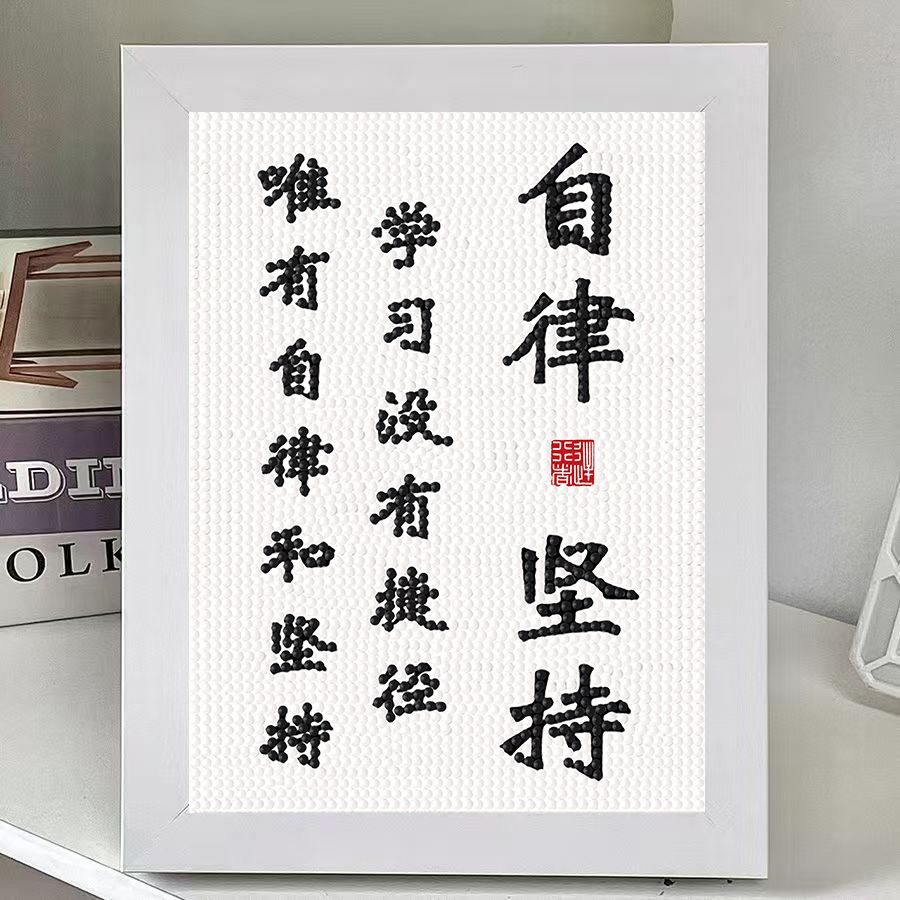 自律
坚持
学习没有捷径
唯有自律和坚持
DI
OLK